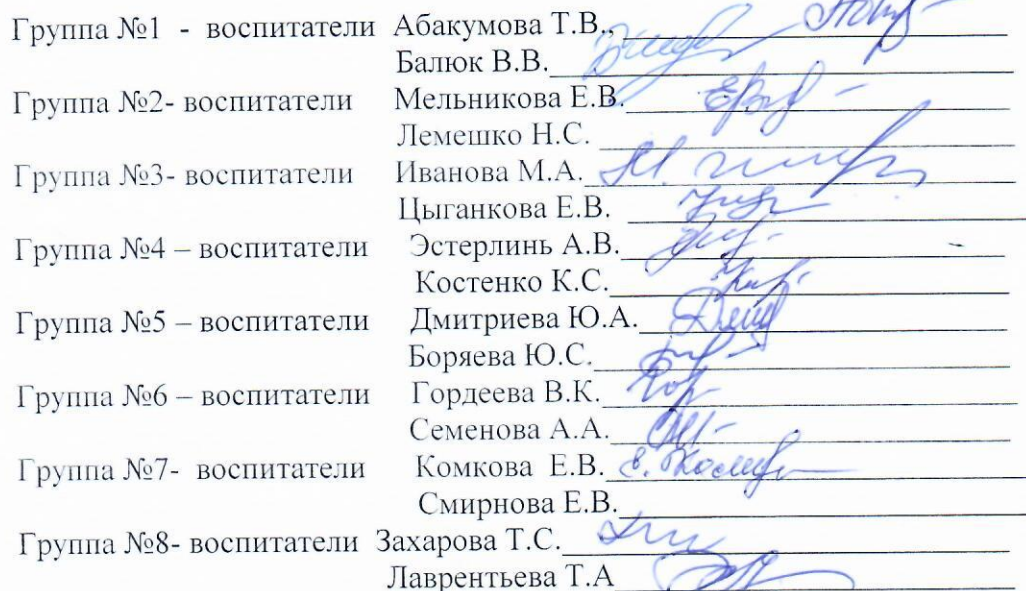 Группа №1 - воспитатели Абакумова Т.В.,
Балюк В.В.
Группа №2- воспитатели Мельникова Е.В.
Лемешко Н.С.
Группа №3- воспитатели Иванова М.А.
Цыганкова Е.В.
Группа №4 – воспитатели Эстерлинь А.В.
Костенко К.С.
Группа №5 – воспитатели Дмитриева Ю.А.
Боряева Ю.С.
Группа №6 – воспитатели Гордеева В.К.
Семенова А.А.
Группа №7- воспитатели Комкова Е.В.
Смирнова Е.В.
Группа №8- воспитатели Захарова Т.С.
Лаврентьева Т.А